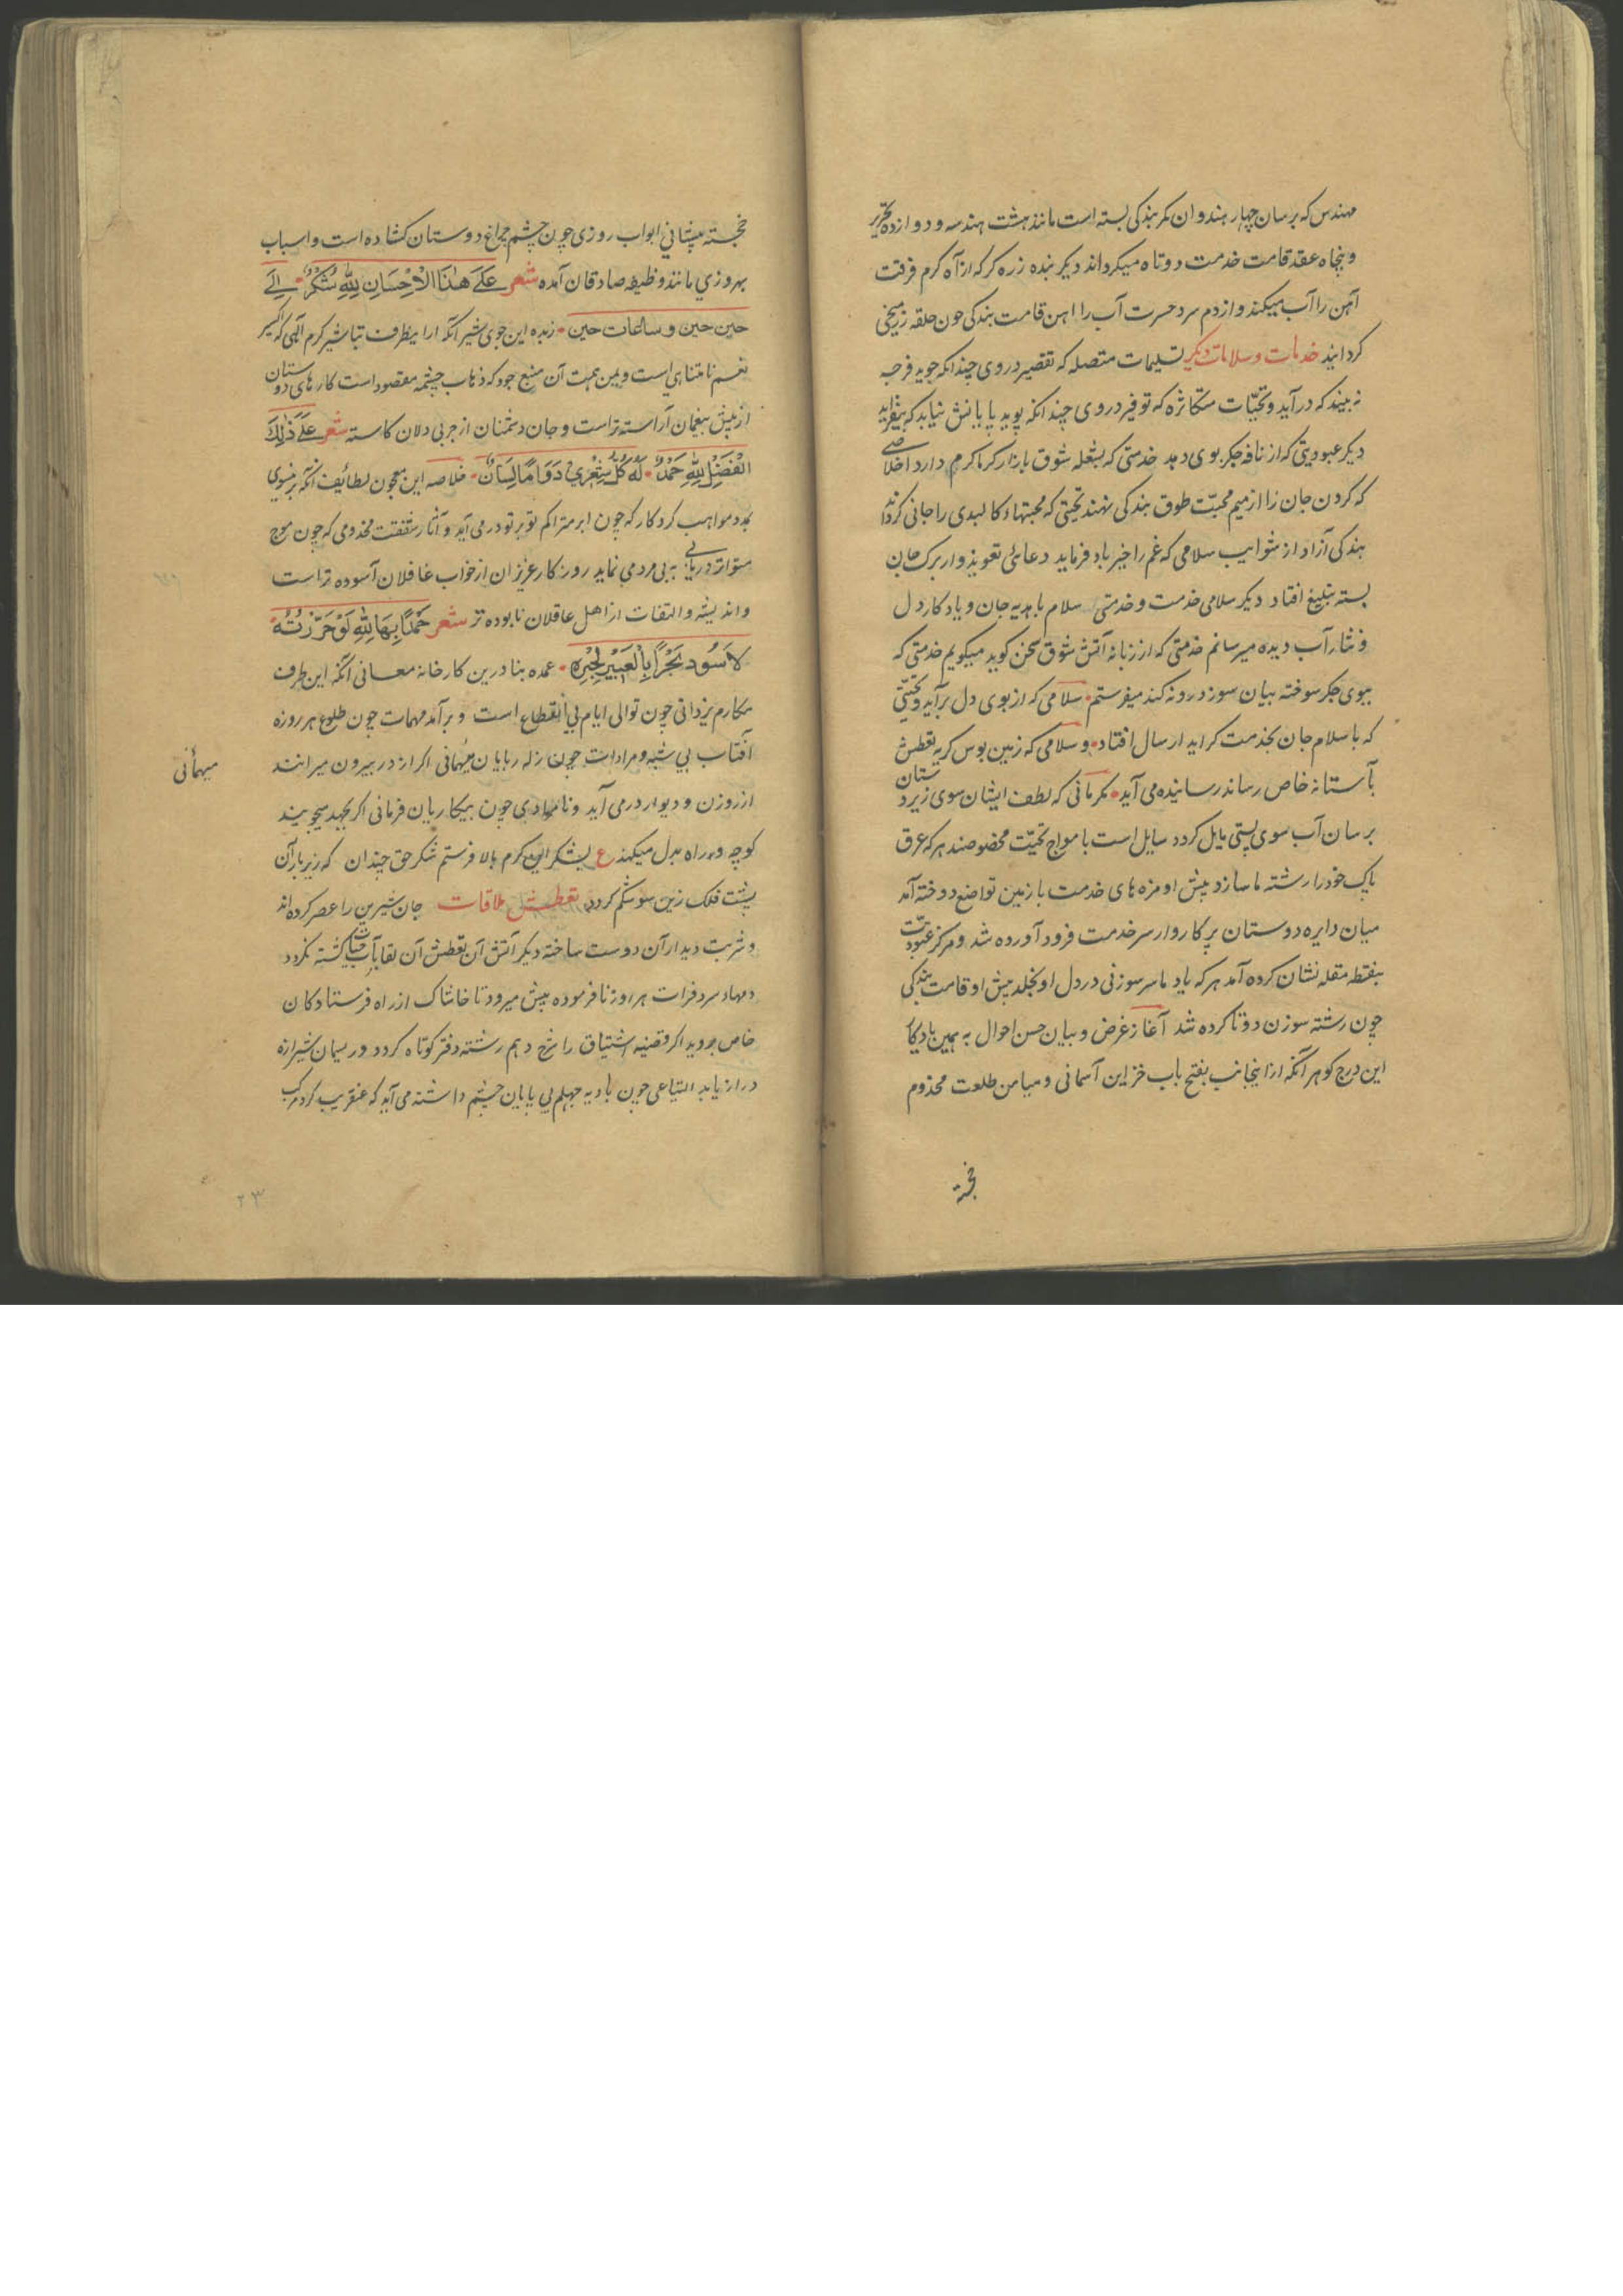 مهندس که برسان چهار هندوان کمر بندکی بسته است مانند هشت هندسه و دوازده تحریر
و پنجاه عقد قامت خدمت دوتاه میکرداند دیکر بنده زره کر که از آه کرم فرقت
آهن را آب میکند و از دم سرد حسرت آب را اهن قامت بندکی چون حلقه زنجیر
کردانید خدمات و سلامات دیکر تسلیمات متصله که تقصیر در وی چندانکه جوید فرجه
نه بیند که درآید و تحیّات متکاثره که توفیر دروی چندانکه پوید پایانش نیابد که بیفزاید
دیکر عبودیتی که از نافه جکر بوی دهد خدمتی که بشعله شوق بازار کرماکرم دارد اخلاصی
که کردن جان را از میم محبّت طوق بندکی نهند تحیتی که محبتهاء کالبدی را جانی کرداند
بندکی آزاد از شوایب سلامی که غم را خیرباد فرماید دعائی تعویذوار برک جان
بسته تبلیغ افتاد دیکر سلامی خدمت و خدمتی سلام با هدیه جان و یادکار دل
و نثار آب دیده میرسانم خدمتی که از زبانه آتش شوق سخن کوید میکویم خدمتی که
ببوی جکر سوخته بیان سوز درونه کند میفرستم سلامی که از بوی دل برآید و تحیّتی
که با سلام جان بخدمت کراید ارسال افتاد و سلامی که زمین بوس کریه تعطش
بآستانه خاص رساند رسانیده می آید مکرمانی که لطف ایشان سوی زیردستان
برسان آب سوی پستی مایل کردد سایل است بامواج تحیّت مخصوصند هر که عرق
پاک خود را رشته ما سازد پیش او مزه های خدمت با زمین تواضع دوخته آمد
میان دایره دوستان پرکاروار سر خدمت فرود آورده شد و مرکز عبودیّت
بنقطه مقله نشان کرده آمد هر که یاد ما سر سوزنی در دل او بخلد پیش او قامت بندکی
چون رشته سوزن دوتا کرده شد آغاز غرض و بیان حسن احوال به همین یادکار
این درج کوهر آنکه ازاینجانب بفتح باب خزاین آسمانی و میامن طلعت مخدوم
خجسته
خجسته پیشانی ابواب روزی چون چشم چراغ دوستان کشاده است و اسباب
بهروزی مانند وظیفه صادقان آمده شعر عَلَى هٰذَا الْاِحْسَانِ لِلّٰهِ شُكْرٌ اِلَى
حین حین و ساعات حین زبده این جوی شیر آنکه ازاینطرف تباشیر کرم آلهی که اکسیر
نعم نامتناهی است و یمن همت آن منبع جود که ذهاب چشمه مقصود است کارهای دوستان
از پیش بیغمان آراسته تر است و جان دشمنان از چربی دلان کاسته شعر عَلَى ذٰلِكَ
الْفَضْلِ لِلّٰهِ حَمْدٌ لَهُ كُلُّ شَعْرِي دَوَامًا لِسَانٌ خلاصه این معجون لطائف آنکه بر منوی
بمدد مواهب کردکار که چون ابر متراکم توبرتو درمی آید و آثار شفقت مخدومی که چون موج
متواتر دریایی پی در پی می نماید روزکار عزیزان از خواب غافلان آسوده تر است
و اندیشه و التفات از اهل عاقلان نابوده تر شعر حَمْدًا بِهَا لِلّٰهِ لَوْ حَرَّرْتُهُ
لَاَسُود بَحْرًا بِالْعَبِيرِ لِحِبْرِهِ عمده بنا درین کارخانه معانی آنکه این طرف
مکارم یزدانی چون توالی ایام بی انقطاع است و برآمد مهمات چون طلوع هر روزه
آفتاب بی شبه و مرادات چون زله ربایان میهمانی اکر از در بیرون میرانند
میهمانی
از روزن و دیوار درمی آید و نامرادی چون بیکاریان فرمانی اکر بجهد میجویند
کوچه و راه بدل میکند ع بشکر این کرم بالا فرستم شکر حق چندان که زیر بار آن
پشت فلک زین سو شکم کردد تعطش ملاقات جان شیرین را عصر کرده اند
و شربت دیدار آن دوست ساخته دیکر آتش آن تعطش آن لقا بآب حیات کشته نکردد
دمهاء سرد فرات هر روز نافرموده پیش میرود تا خاشاک از راه فرستادکان
خاص بروبد اکر قضیه اشتیاق را شرح دهم رشته دفتر کوتاه کردد و ریسمان شیرازه
دراز باید التیاعی چون بادیه جهلم بی پایان چشم داشته می آید که عنقریب کرد مرکب
۲۳